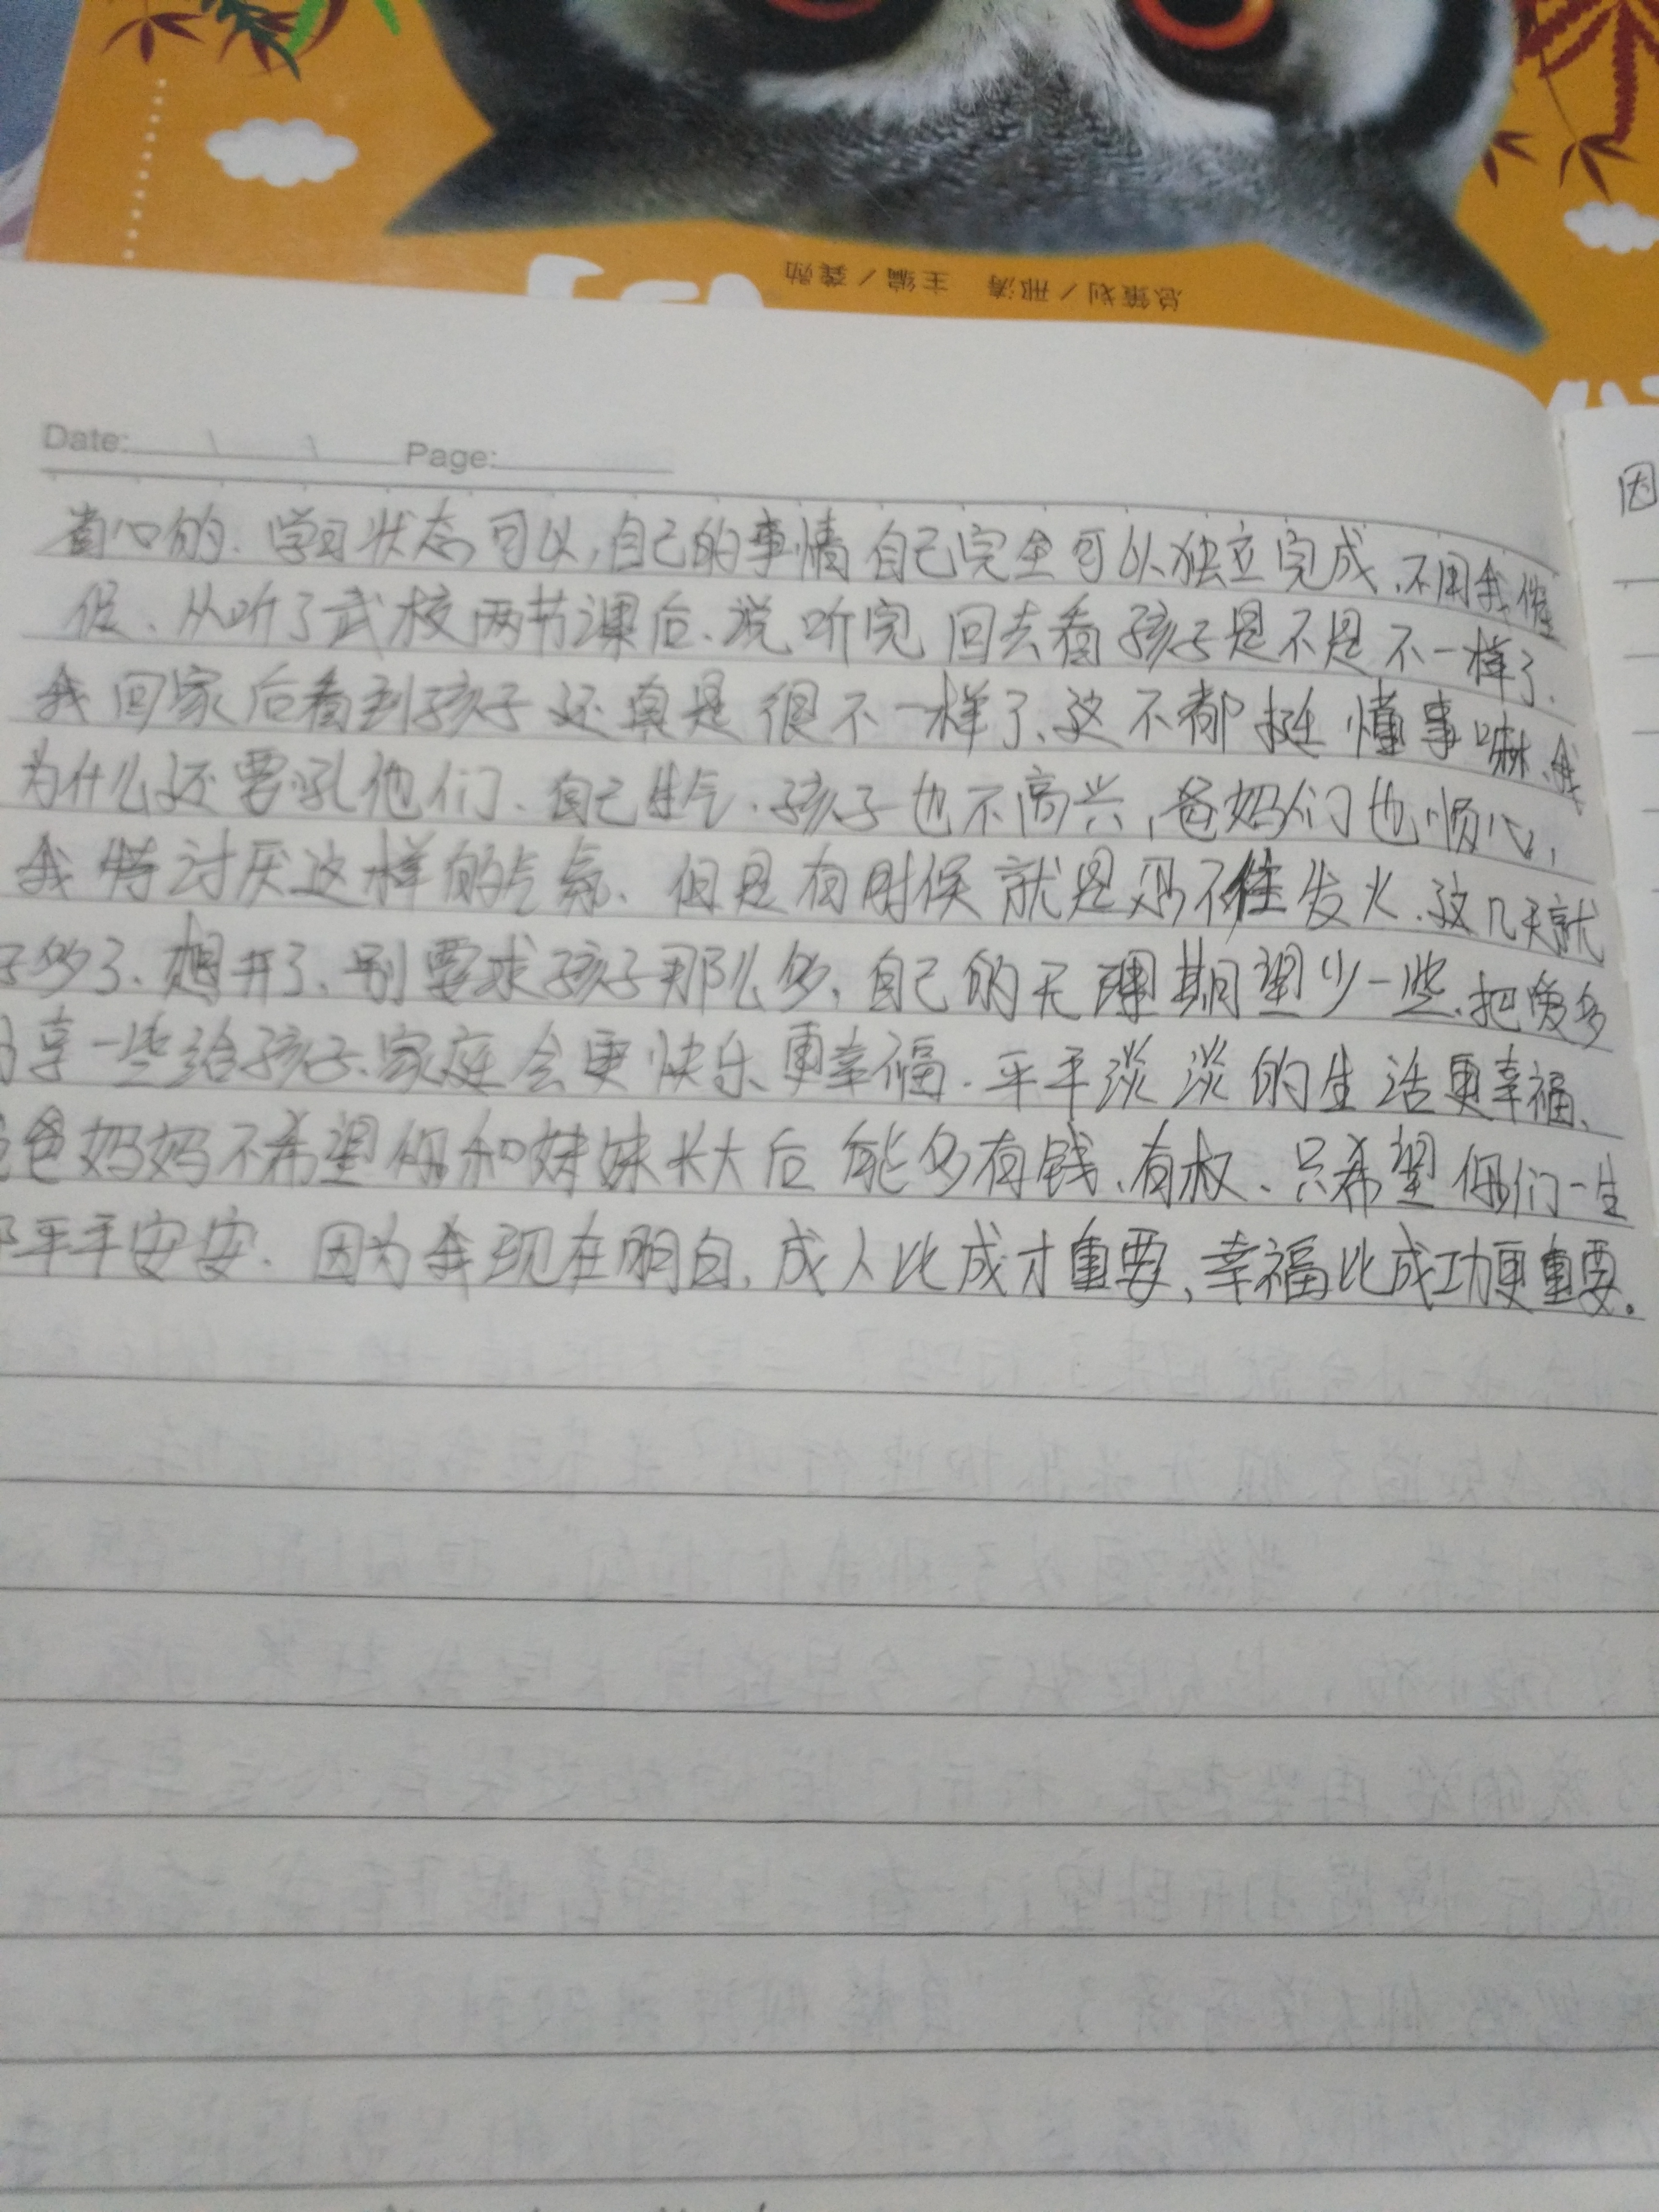 总策划／邢涛 主编／龚勋
Date: Page:
省心的、学习状态可以,自己的事情自己完全可以独立完成、不用我催
促、从听了武校两节课后、说听完回去看孩子是不是不一样了、
我回家后看到孩子还真是很不一样了、这不都挺懂事嘛、我
为什么还要吼他们、自己生气、孩子也不高兴,爸妈们也烦心,
我特讨厌这样的气氛、但是有时候就是忍不住发火、这几天就
好多了、想开了、别要求孩子那么多,自己的无理期望少一些、把爱多
分享一些给孩子、家庭会更快乐更幸福、平平淡淡的生活更幸福、
爸爸妈妈不希望你和妹妹长大后能多有钱、有权、只希望你们一生
平平安安、因为我现在明白,成人比成才重要,幸福比成功更重要。
因